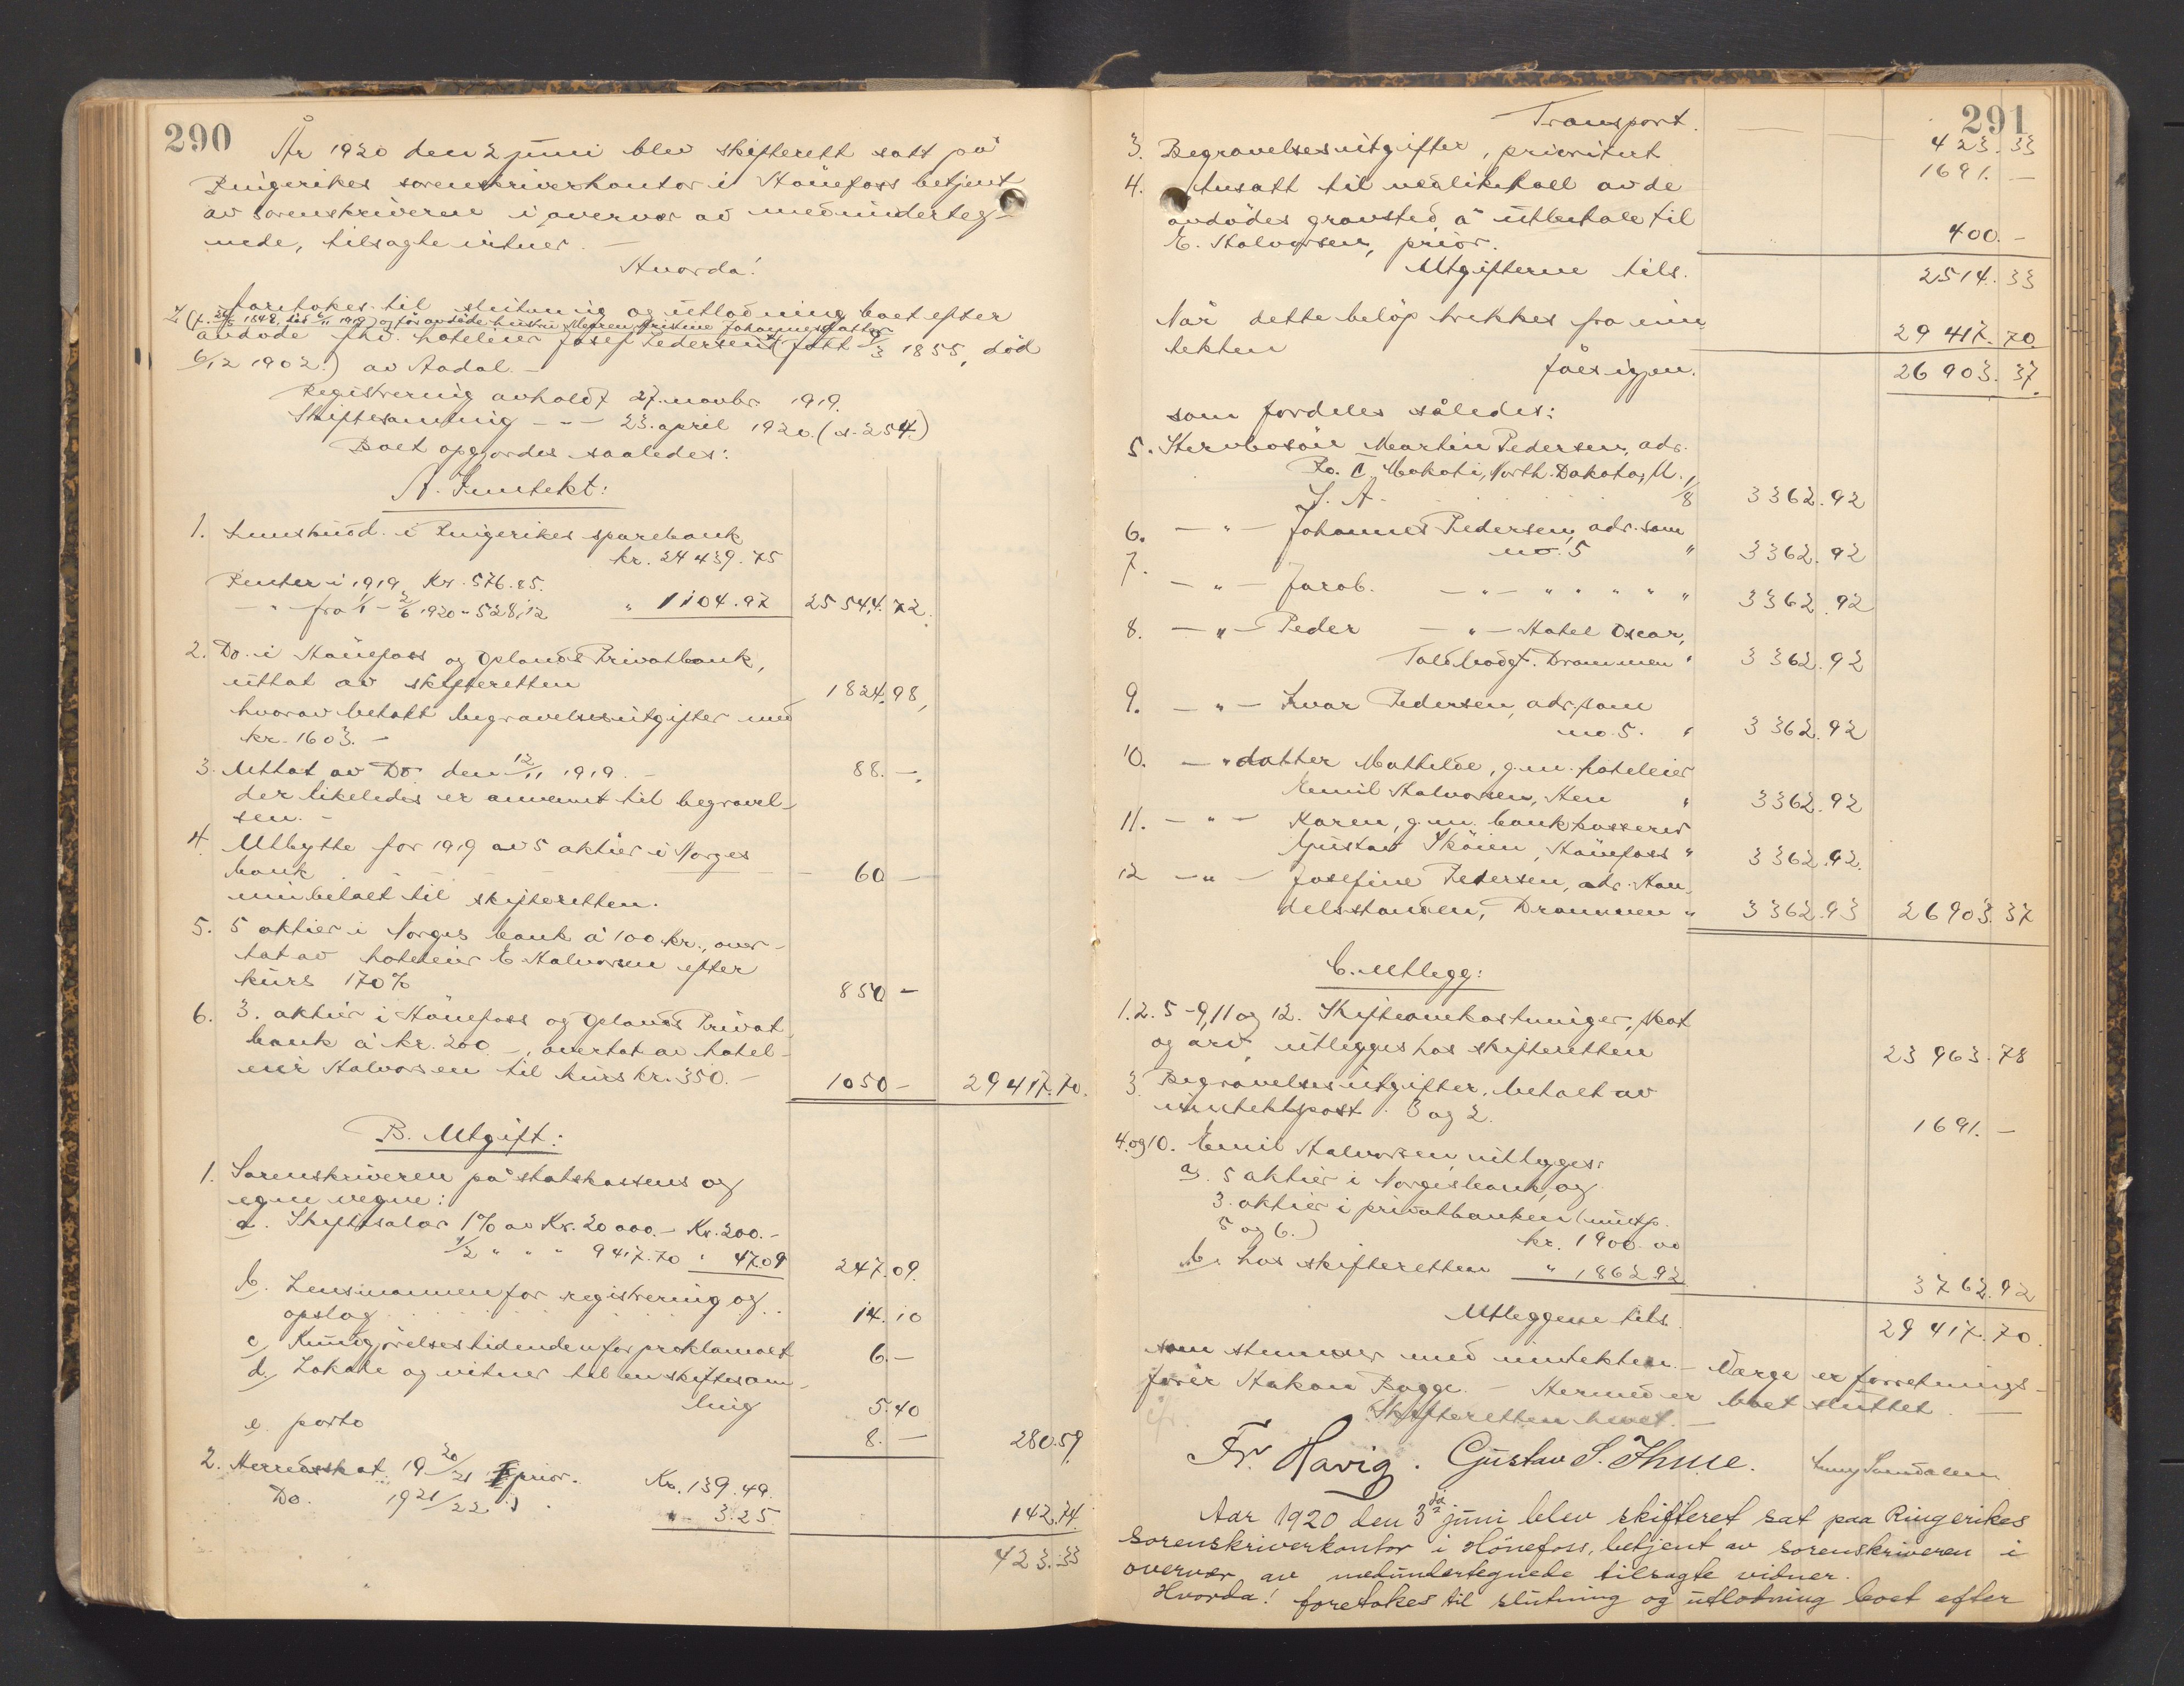 290
År 1920 den 2 juni blev skifterett satt på
Ringerikes sorenskriverkontor i Hönefoss betjent
av sorenskriveren i overvær av medunderteg-
nede, tilsagte vitner. —
Hvorda!
foretokes til slutning og utlodning boet efter
(f. 24/5 1848, död 6/11 1919) og för avdöde hustru Maren Kristine Johannesdatter
avdöde fhv. hoteleier Josef Pedersen (fött 9/3 1855, död
6/12 1902.) av Aadal. —
Registrering avholdt 27. novbr. 1919.
Skiftesamling — " — 23. april 1920. (s. 254.)
Boet opgjordes saaledes:
A. Inntekt:
1. Innskudd i Ringerikes sparebank
kr. 24 439.75
Renter i 1919 Kr. 576.85.
— " — fra 1/1 - 2/6 1920 " 528.12 " 1104.97 25 544.72.
2. Do. i Hönefoss og Oplands Privatbank,
uttat av skifteretten 1824.98,
hvorav betalt begravelsesutgifter med
kr. 1603. —
3. Uttat av Do den 12/11 1919. — 88. —,
der likeledes er anvennt til begravel-
sen. —
4. Utbytte for 1919 av 5 aktier i Norges
bank - - - - - 60 —
innbetalt til skifteretten.
5. 5 aktier i Norges bank à 100 kr., over-
tat av hoteleier E. Halvorsen efter
kurs 170% 850 —
6. 3. aktier i Hönefoss og Oplands Privat-
bank à kr. 200 —, overtat av hotel-
eier Halvorsen til kurs kr. 350. — 1050 — 29 417.70.
B. Utgift:
1. Sorenskriveren på statskassens og
egne vegne:
a. Skiftsalær 1% av Kr. 20 000. — Kr. 200. —
1/2 " " " 9 417.70 " 47.09 247.09.
b. Lensmannen for registrering og
opslag . . . . . . 14.10
c. Kunngjörelsestidenden for proklamaet 6. —
d. Lokale og vitner til en skiftesam-
ling 5.40
e. porto 8. — 280.59
2. Herredsskat 19 20/21 prior. Kr. 139.49.
Do. 19 21/22 " " 3.25 142.74.
423.33
291
Transport. 423.33
3. Begravelsesutgifter, prioritert 1691. —
4. Ansatt til vedlikehold av de
avdödes gravsted å utbetale til
E. Halvorsen, prior. 400. —
Utgifterne tils. 2514.33
Når dette belöp trekkes fra inn
tekten 29 417.70.
fåes igjen. 26 903.37.
som fordeles således:
5. Stervbosön Martin Pedersen, adr.
Bo. C. Makoti, North. Dakota, U.
S. A. 1/8 3362.92
6. — " — Johannes Pedersen, adr. som
no. 5 " 3362.92
7. — " — Jacob. — " — " " " " " 3362.92
8. — " — Peder — " — Hotel Oscar,
Toldbodgt. Drammen " 3362.92
9. — " — Ivar Pedersen, adr. som
no. 5. " 3362.92
10. — " datter Mathilde, g.m. hoteleier
Emil Halvorsen, Hen " 3362.92
11. — " — Karen, g.m. bankkasserer
Gustav Sköien, Hönefoss " 3362.92.
12 — " — Josefine Pedersen, adr. Han-
delsstanden, Drammen " 3362.93 26903.37
C. Utlegg:
1. 2. 5-9, 11 og 12. Skifteomkostninger, skat
og arv utlegges hos skifteretten 23 963.78
3 Begravelsesutgifter, betalt av
inntektspost 3 og 2. 1691. —
4. og 10. Emil Halvorsen utlegges:
a. 5 aktier i Norges bank og
3. aktier i privatbanken (inntp.
5 og 6.) kr. 1900.00
b. hos skifteretten " 1862.92 3762.92
Utleggene tils. 29 417.70.
som stemmer med inntekten. — Værge er forretnings-
förer Håkon Bagge. — Hermed er boet sluttet. —
Skifteretten hevet. —
Fr. Havig. Gustav S. Ihme.
Aar 1920 den 3die juni blev skifteret sat paa Ringerikes
sorenskriverkontor i Hönefoss, betjent av sorenskriveren i
overvær av medundertegnede tilsagte vidner.
Hvorda! foretokes til slutning og utlodning boet efter